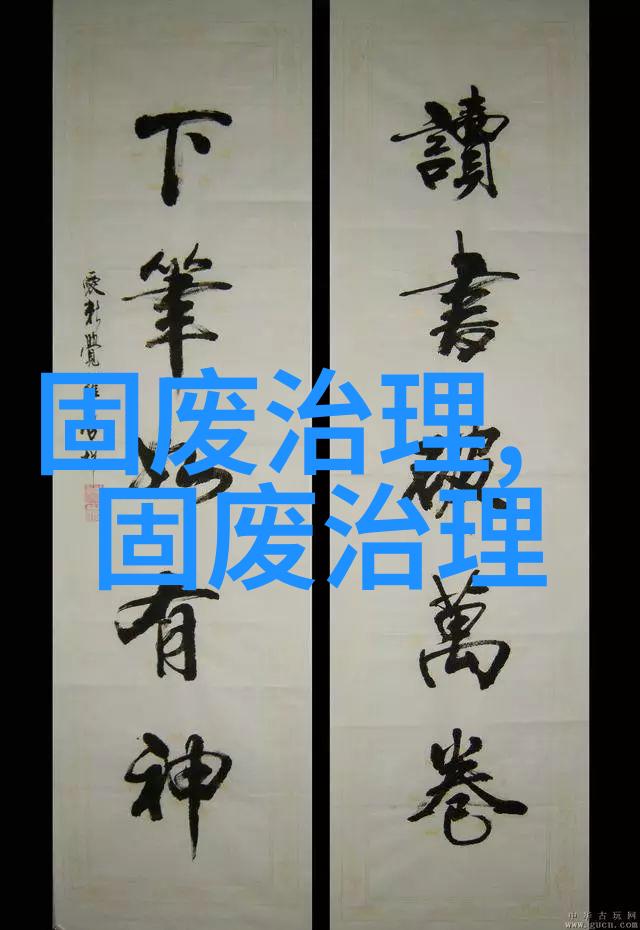 讀書破萬卷
下筆如有神
固废治理,
固废治理
中华古玩网
www.gucn.com